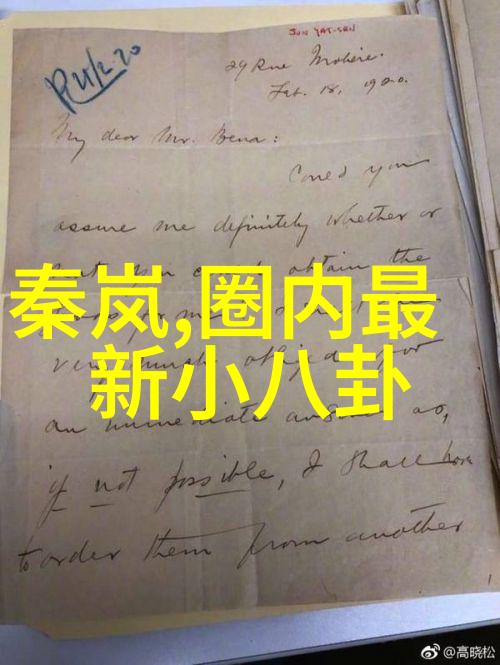 SUN YAT-SEN
R 21/2.20
29 Rue Molière.
Feb. 18, 1920.
My dear Mr. Bena:
Could you
assure me definitely whether or
not you could obtain the
for me
秦岚,圈内最
新小八卦
very much obliged for
an immediate answer as,
if not possible, I shall have
to order them from another
@高晓松